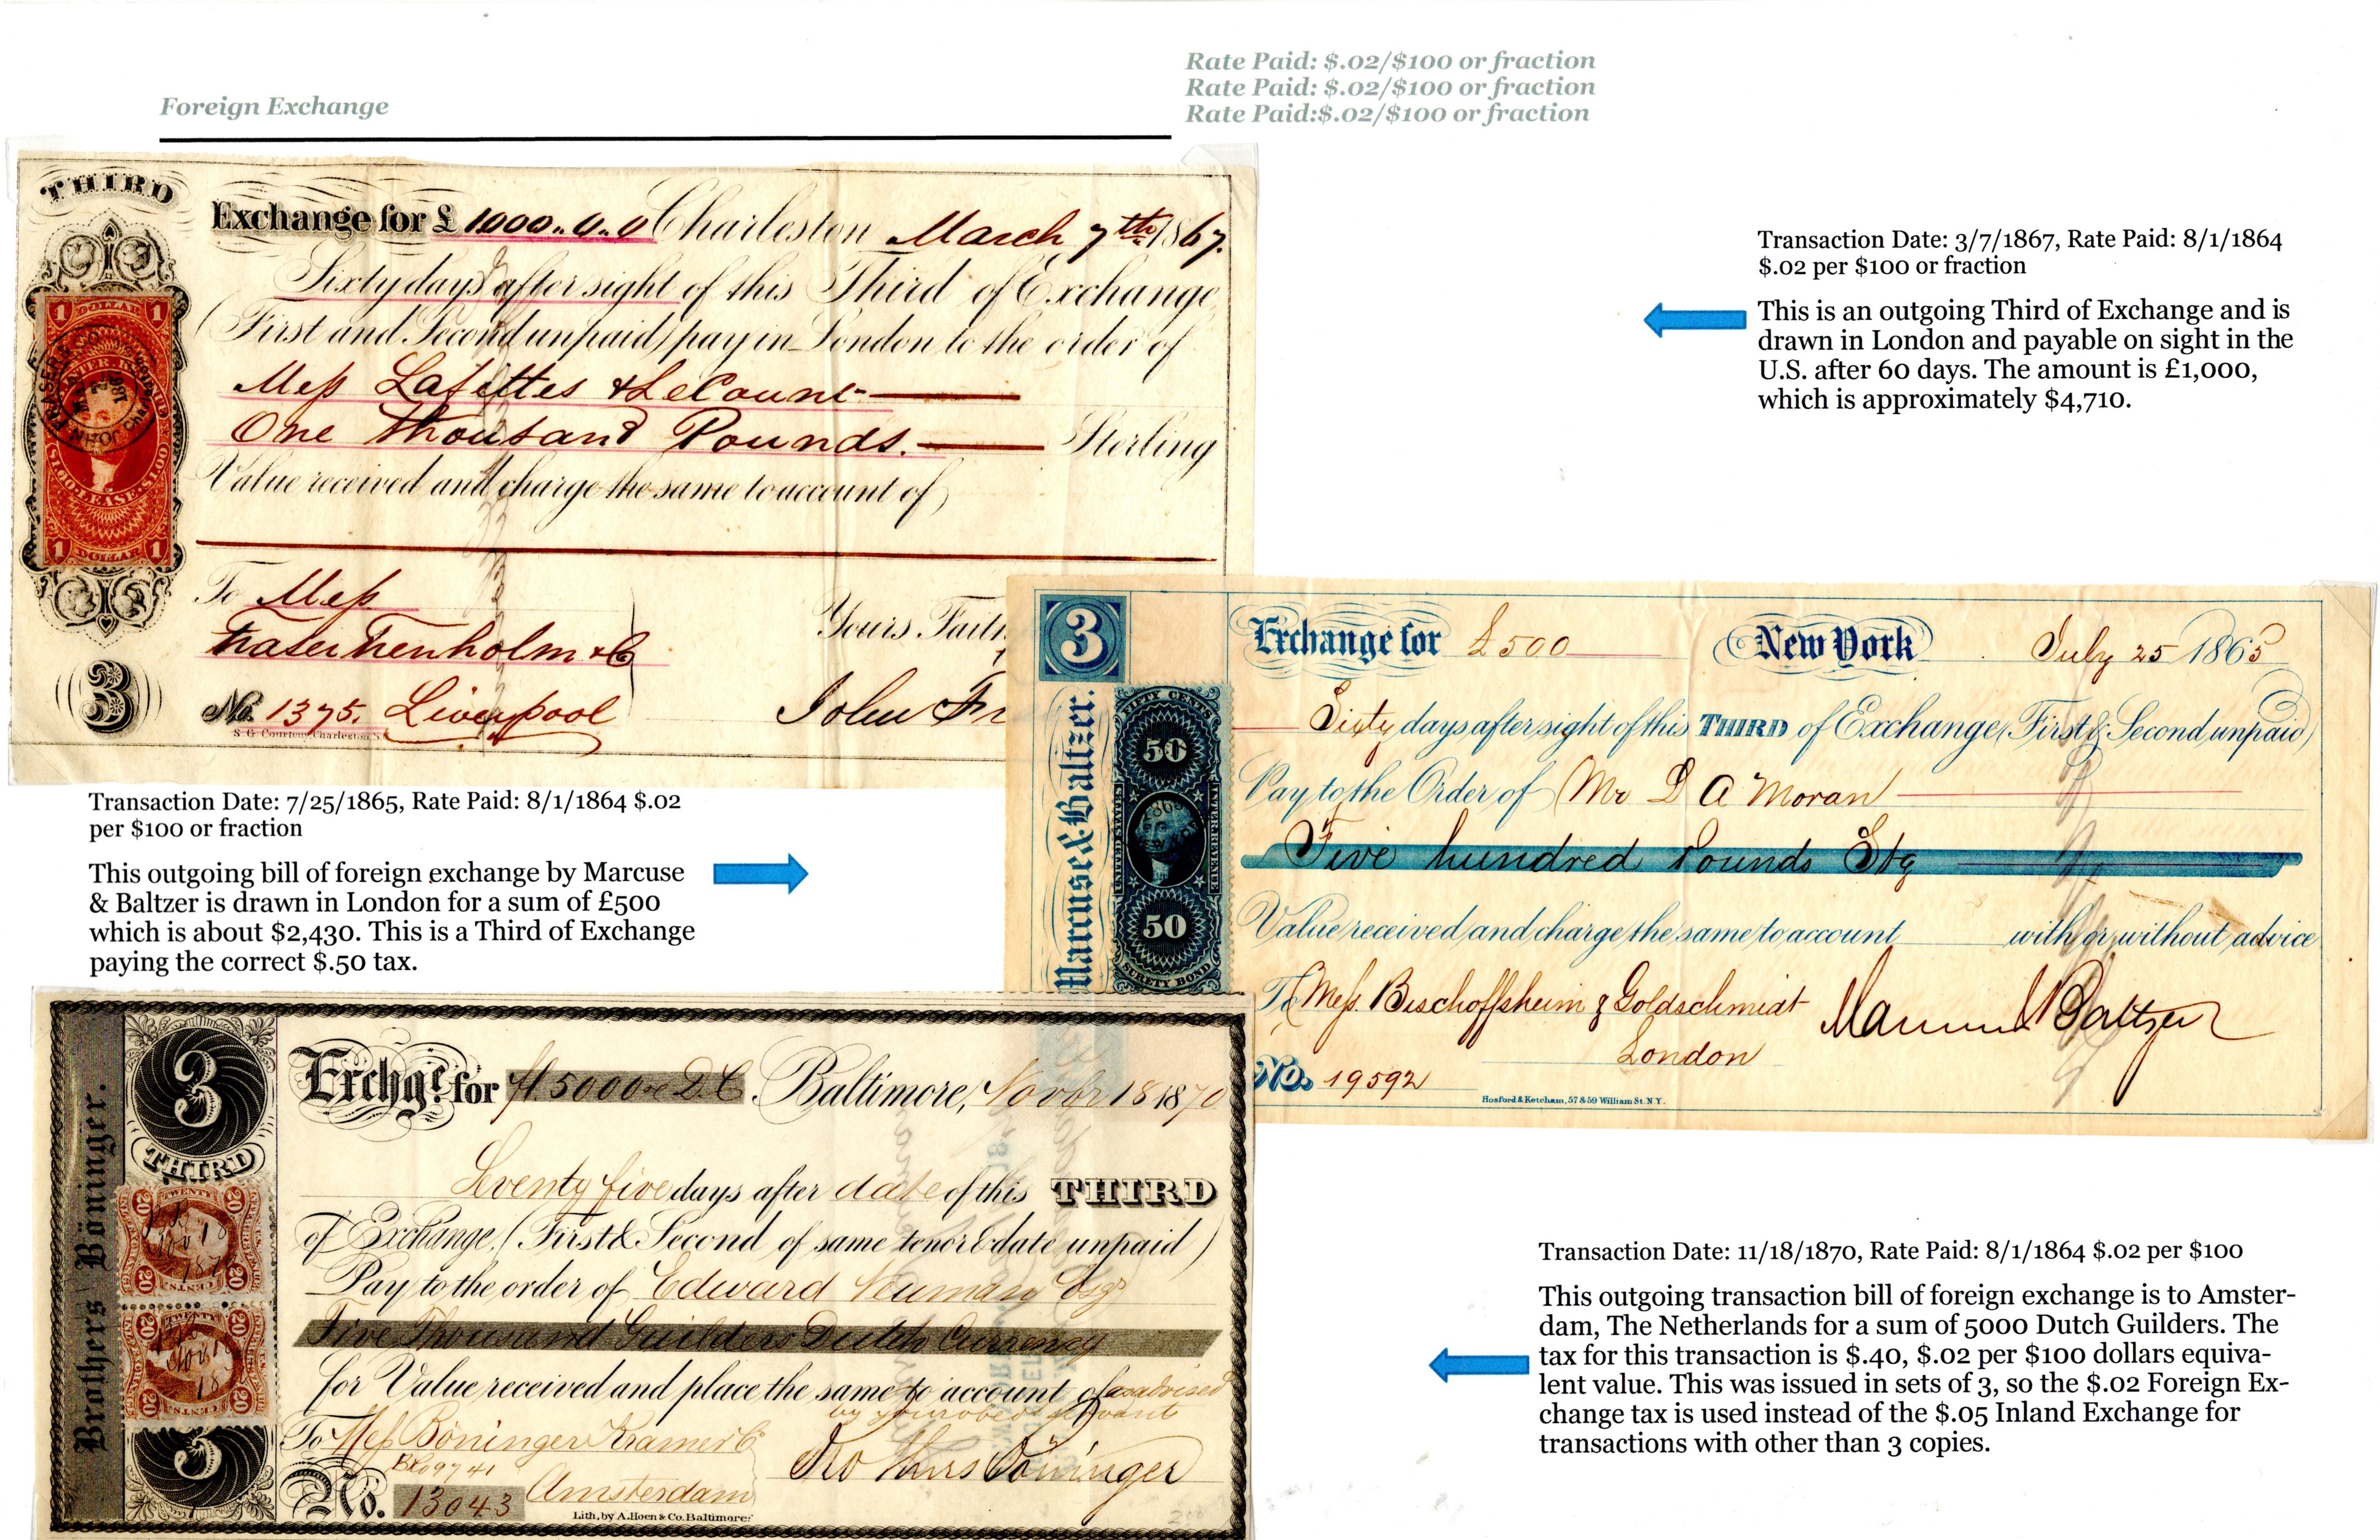 Foreign Exchange
Rate Paid: $.02/$100 or fraction
Rate Paid: $.02/$100 or fraction
Rate Paid:$.02/$100 or fraction
THIRD
Exchange for £ 1000.. 0.. 0 Charleston March 7th 1867.
Sixty days after sight of this Third of Exchange
(First and Second unpaid) pay in London to the order of
Mess Lafittes & LeCount
One Thousand Pounds. Sterling
Value received and charge the same to account of
To Mess
Fraser Trenholm & Co
Yours Faith
No. 1375. Liverpool
John Fr
S. G. Courtenay, Charleston, S.
3
1 DOLLAR 1
INTER. REV.
$1.00 LEASE $1.00
1 DOLLAR 1
Transaction Date: 3/7/1867, Rate Paid: 8/1/1864
$.02 per $100 or fraction
This is an outgoing Third of Exchange and is
drawn in London and payable on sight in the
U.S. after 60 days. The amount is £1,000,
which is approximately $4,710.
3
Marcuse & Baltzer.
Exchange for £500 New York July 25 1865
Sixty days after sight of this THIRD of Exchange (First & Second unpaid)
Pay to the Order of Mr D A Moran
Five hundred Pounds Stg
Value received and charge the same to account with or without advice
To Mess. Bischoffsheim & Goldschmidt
London
Marcuse & Baltzer
No. 19592
Hosford & Ketcham, 57 & 59 William St. N.Y.
FIFTY CENTS
50
UNITED STATES
INTER. REVENUE
50
SURETY BOND
Transaction Date: 7/25/1865, Rate Paid: 8/1/1864 $.02
per $100 or fraction
This outgoing bill of foreign exchange by Marcuse
& Baltzer is drawn in London for a sum of £500
which is about $2,430. This is a Third of Exchange
paying the correct $.50 tax.
Brothers Böninger.
3
THIRD
Exchge. for fl. 5000 D.C. Baltimore, Novbr 18 1870
Seventy five days after date of this THIRD
of Exchange, (First & Second of same tenor & date unpaid)
Pay to the order of Edward Neumann Esqr
Five Thousand Guilders Dutch Currency
for Value received and place the same to account of as advised
by your obed. servants
To Mess Böninger Kramer & Co
Amsterdam
Brothers Böninger
No. 13043
Lith. by A. Hoen & Co. Baltimore.
3
20 TWENTY 20
Nov 18
1870
20 CENTS 20
Transaction Date: 11/18/1870, Rate Paid: 8/1/1864 $.02 per $100
This outgoing transaction bill of foreign exchange is to Amster-
dam, The Netherlands for a sum of 5000 Dutch Guilders. The
tax for this transaction is $.40, $.02 per $100 dollars equiva-
lent value. This was issued in sets of 3, so the $.02 Foreign Ex-
change tax is used instead of the $.05 Inland Exchange for
transactions with other than 3 copies.